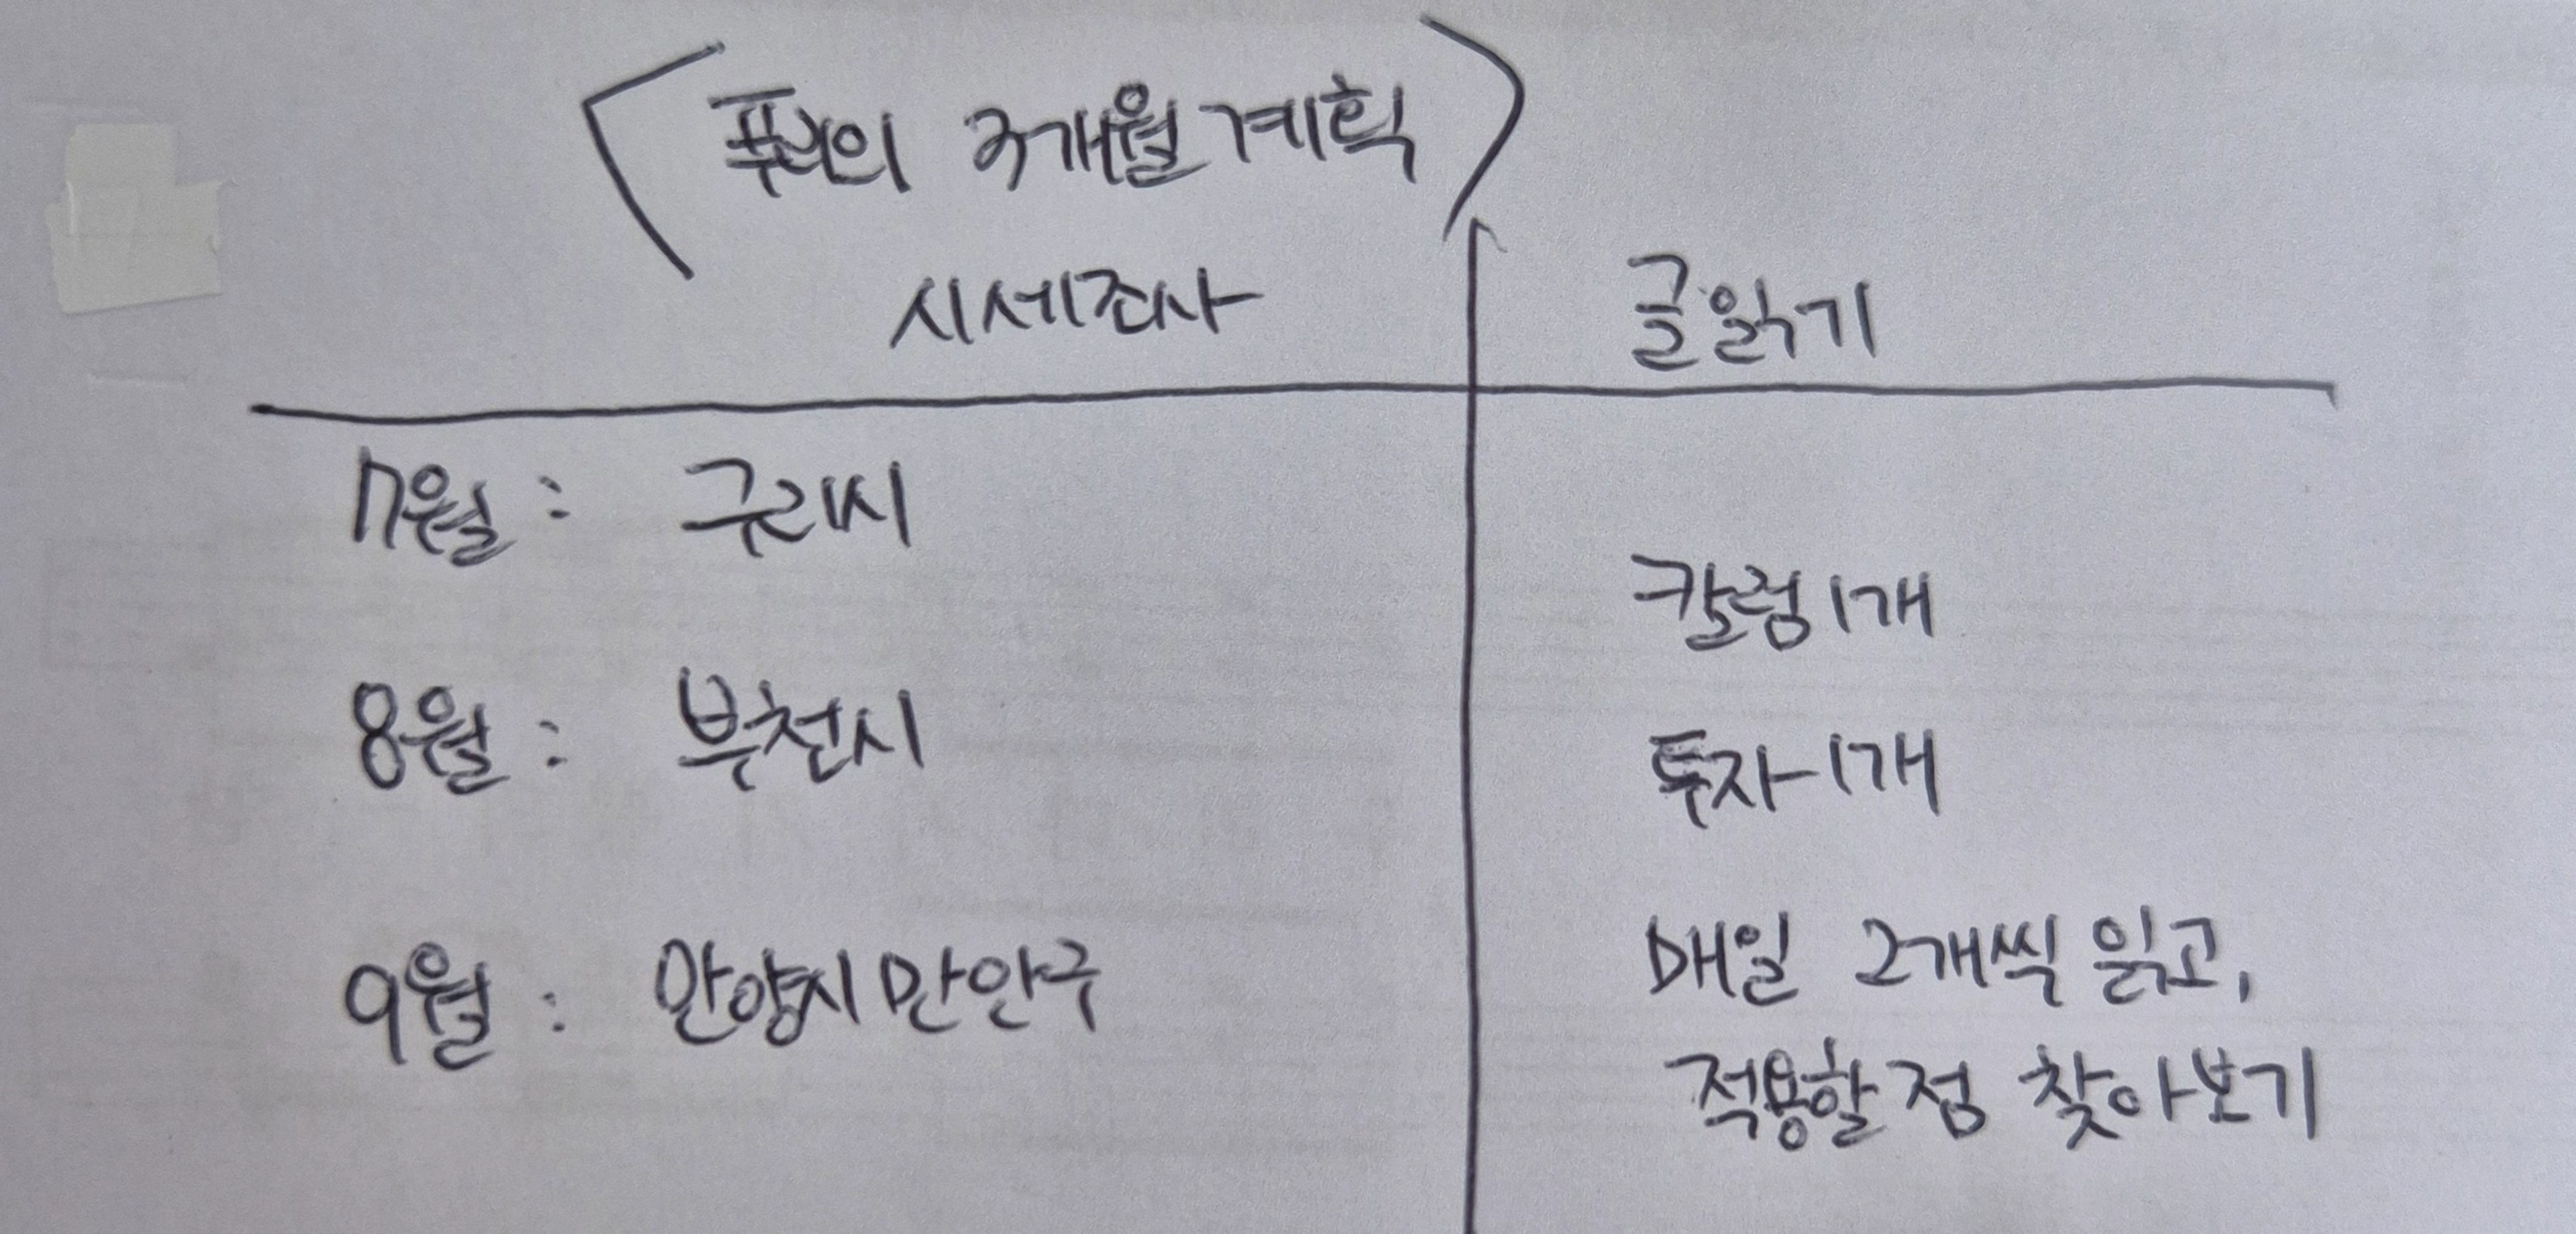 의 3개월 계획
시세조사
글읽기
7월 : 구리시
칼럼 1개
8월 : 부천시
투자 1개
9월 : 안양시 만안구
매일 2개씩 읽고,
적용할 점 찾아보기